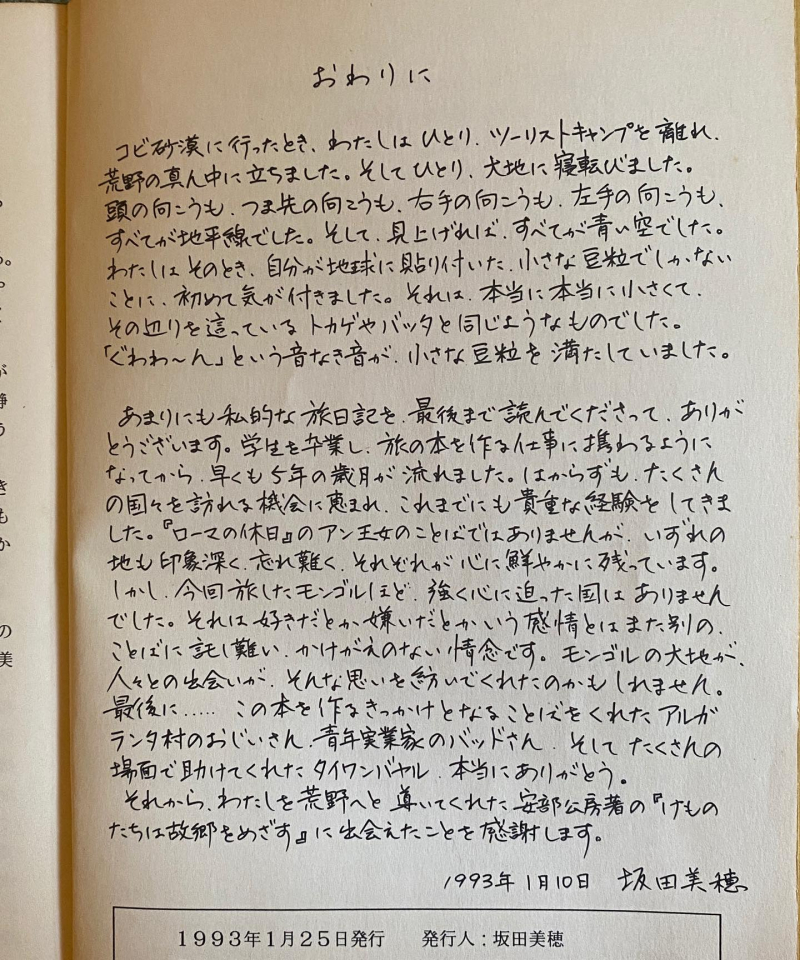 おわりに
コビ砂漠に行ったとき、わたしは ひとり、ツーリストキャンプを 離れ、
荒野の真ん中に立ちました。そして ひとり、大地に 寝転びました。
頭の向こうも、つま先の向こうも、右手の向こうも、左手の向こうも、
すべてが地平線でした。そして、見上げれば、すべてが青い空でした。
わたしは そのとき、自分が地球に貼り付いた、小さな豆粒でしかない
ことに、初めて気が付きました。それは、本当に本当に小さくて、
その辺りを這っている トカゲや バッタと同じような ものでした。
「ぐわわ〜ん」という音なき音が、小さな豆粒を 満たして いました。
あまりにも 私的な 旅日記を、最後まで 読んでくださって、ありが
とうございます。学生を卒業し、旅の本を作る仕事に携わるように
なってから、早くも 5年の歳月が 流れました。はからずも、たくさん
の国々を訪れる 機会に恵まれ、これまでにも 貴重な経験を してきま
した。『ローマの休日』の アン王女のことばではありませんが、いずれの
地も 印象深く、忘れ難く、それぞれが 心に鮮やかに残っています。
しかし、今回 旅した モンゴルほど、強く心に迫った国は ありません
でした。それは 好きだとか嫌いだとか いう 感情とは また別の、
ことばに 託し難い、かけがえのない 情念です。モンゴルの大地が、
人々との出会いが、そんな思いを 紡いでくれたのかも しれません。
最後に…… この本を作るきっかけとなる ことばをくれた アルガ
ランタ村の おじいさん、青年実業家の バッドさん、そして たくさんの
場面で助けてくれた タイワンバヤル、本当に ありがとう。
それから、わたしを荒野へと 導いてくれた 安部公房著の『けもの
たちは故郷をめざす』に 出会えたことを 感謝します。
1993年 1月10日 坂田美穂
1993年1月25日発行 発行人：坂田美穂
。
が
静
う
き
も
か
の
美